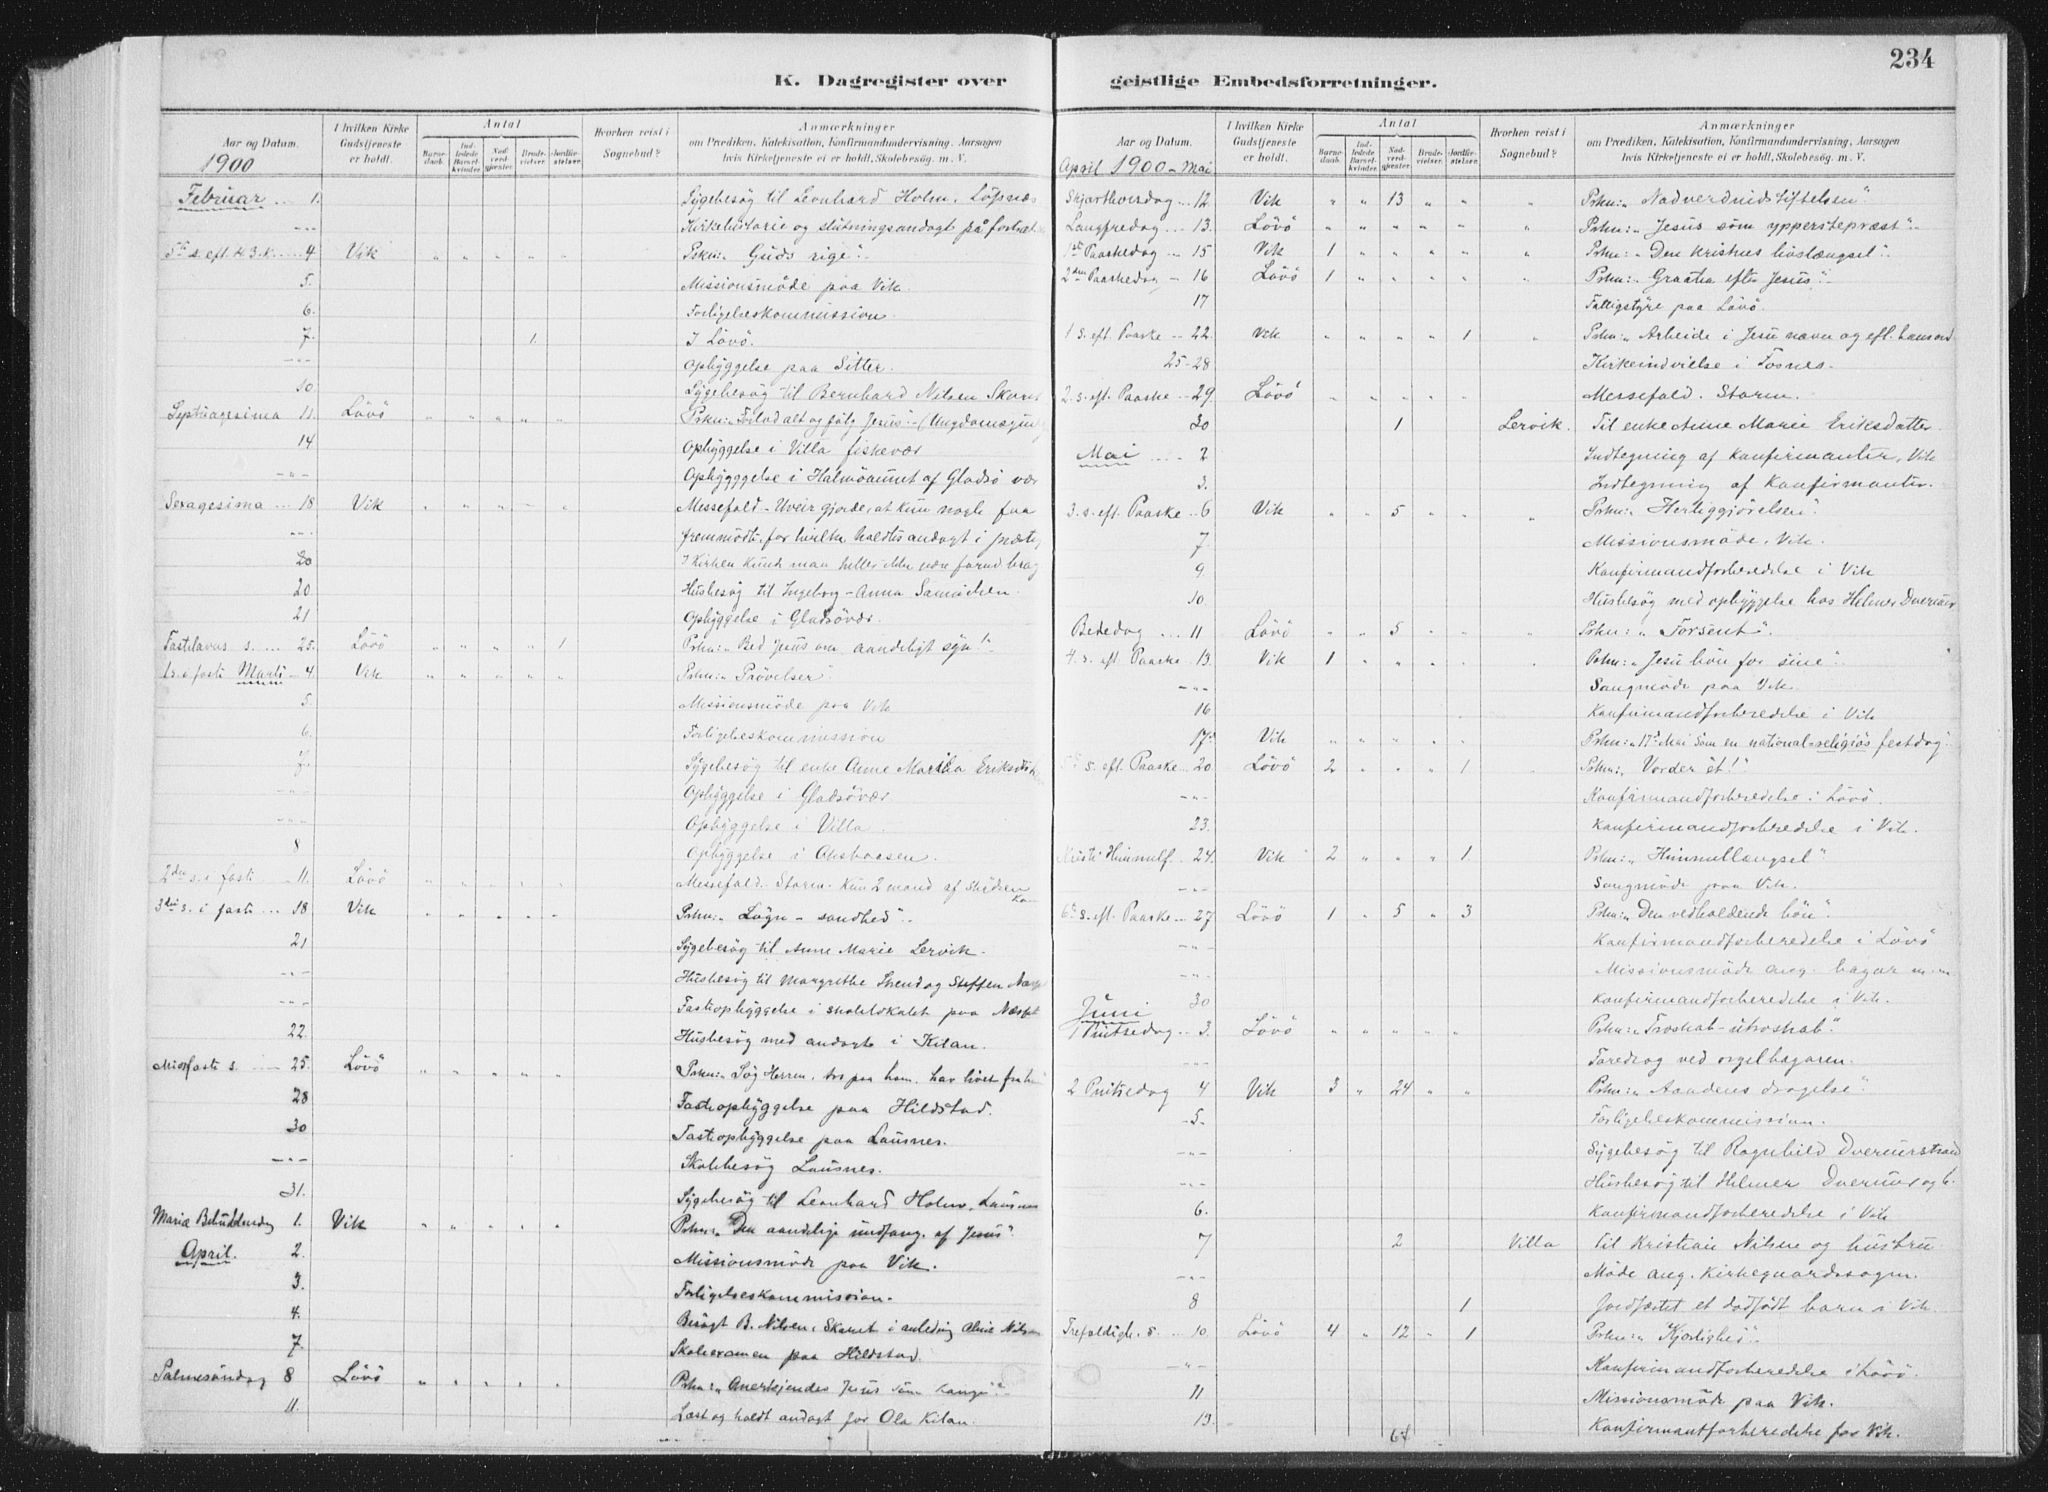 234
K. Dagregister over
Aar og Datum.
I hvilken Kirke Gudstjeneste er holdt.
Antal
Barne-daab.
Ind-ledede Barsel-kvinder.
Nad-verd-gjester.
Brude-vielser.
Jordfæ-stelser.
Hvorhen reist i Sognebud?
Anmærkninger
om Prædiken, Katekisation, Konfirmandundervisning, Aarsagen
hvis Kirketjeneste ei er holdt, Skolebesøg. m. V.
1900
Februar ... 1. Sygebesøg til Leonhard Holm, Löpnæs
-"- Kirkehistorie og slutningsandagt på
5te s. eft. H3.K. ... 4 Vik " " " " " Prkn: "Guds rige".
5. Missionsmøde paa Vik.
6. Forligelseskommission
7. 1. I Lövö.
-"- Opbyggelse paa Sitter.
10 Sygebesøg til Bernhard Nilsen Skaret
Septuagesima 11. Lövö " " " " " Prkn: "Forlad alt og følg Jesus" - (Ungdoms
14 Opbyggelse i Villa fiskevær
-"- Opbygggelse i Halmöaunet af Gladsö vær
Sexagesima ... 18 Vik " " " - " Messefald - Uveir gjorde, at kun nogle faa
-"- fremmödte, for hvilke holdtes andagt i
20 I Kirken kunde man heller ikke være
20. Husbesøg til Ingeborg-Anna Samuelsen.
21 Opbyggelse i Gladsövær.
Fastelavns s. ... 25. Lövö " " " " 1 Prkn: "Bed Jesus om aandeligt syn!"
1. s. i faste Marts - 4. Vik " " " " " Prkn: "Prövelser"
5. Missionsmöde paa Vik
6. Forligelseskommission
7. Sygebesøg til enke Anne Maria
-"- Opbyggelse i Gladsövær
-"- Opbyggelse i Villa.
8 Opbyggelse i
2den s. i faste ... 11. Lövö " " " " " Messefald. Storm. Kun 2 mand af
3die s. i faste ... 18 Vik " " " " " Prkn: "Løgn - sandhed".
21 Sygebesøg til Anne Marie Lervik.
-"- Husbesøg til Margrethe Svend og Steffen
-"- Fasteopbyggelse i skolelokalet paa
22. Husbesøg med andagt i Kilan.
Midfaste s. ... 25. Lövö " " " " " Prkn: "Søg Herren,
28 Fasteopbyggelse paa Hildstad.
30 Fasteopbyggelse paa Lausnes.
-"- Skolebesøg Lausnes.
31. Sygebesøg til Leonhard Holm, Lausnes
Mariæ Bebudelsesdag 1. Vik " " " " " Prkn: "Den aandelige undfang. af Jesus".
April. 2. Missionsmöde paa Vik.
3. Forligelseskommission.
4. Besøgt B. Nilsen, Skaret i anledning
7. Skoleexamen paa Hildstad.
Palmesöndag 8 Lövö " " " " " Prkn: "Anerkjendes Jesus som konge".
11. Læst og holdt andagt for Ola Kilan.
geistlige Embedsforretninger.
Aar og Datum.
I hvilken Kirke Gudstjeneste er holdt.
Antal
Barne-daab.
Ind-ledede Barsel-kvinder.
Nad-verd-gjester.
Brude-vielser.
Jordfæ-stelser.
Hvorhen reist i Sognebud?
Anmærkninger
om Prædiken, Katekisation, Konfirmandundervisning, Aarsagen
hvis Kirketjeneste ei er holdt, Skolebesøg. m. V.
April 1900 - Mai
Skjærthorsdag ... 12 Vik " " 13 " " " Prkn: "Nadverdindstiftelsen"
Langfredag ... 13. Lövö " " " " " " Prkn: "Jesus som ypperstepræst".
1ste Paaskedag - 15 Vik 1 " " " " " Prkn: "Den kristnes livslængsel".
2den Paaskedag - 16 Lövö 1 " " " " " Prkn: "Graata efter Jesus".
17 Fattigstyre paa Lövö.
1 s. eft. Paaske ... 22. Vik " " " " 1 " Prkn: "Arbeide i Jesu navn og eft. hans ord
25-28 Kirkeindvielse i Fosnes.
2. s. eft. Paaske ... 29. Lövö " " " " " Messefald. Storm.
30 1 Lervik. Til enke Anne Marie Eriksdatter.
Mai ... 2 Indtegning af Konfirmanter, Vik
3. Indtegning af Konfirmanter.
3. s. eft. Paaske - 6 Vik " " 5 " " " Prkn: "Herliggjörelsen".
7. Missionsmöde, Vik.
9. Konfirmandforberedelse i Vik
10 Husbesøg med opbyggelse hos Helmer
Bededag ... 11 Lövö " " 5 " " " Prkn: "Forsent".
4. s. eft. Paaske - 13. Vik 1 " " " " " Prkn: "Jesu bön for sine".
-"- Sangmöde paa Vik.
16 Konfirmandforberedelse i Vik
17de Vik " " " " " Prkn: "17de Mai som en national-religiös festdag".
5te s. eft. Paaske ... 20. Lövö 2 " " " 1 " Prkn: "Vorder et!"
-"- Konfirmandforberedelse i Lövö.
23. Konfirmandforberedelse i Vik.
Kristi Himmelf. 24. Vik 2 " " " 1. Prkn: "Himmellængsel".
-"- Sangmöde paa Vik.
6te s. eft. Paaske - 27 Lövö 1 " 5 " 3 Prkn: "Den vedholdende bön".
-"- Konfirmandforberedelse i Lövö
-"- Missionsmöde ang.
30 Konfirmandforberedelse i Vik.
Juni
1 Pintsedag ... 3. Lövö " " " " " Prkn: "Troskab - utroskab".
-"- Foredrag ved orgelbazaren.
2 Pintsedag 4 Vik 3 " 24 " " Prkn: "Aandens
-5- Forligelseskommission.
-"- Sygebesøg til Ragnhild
-"- Husbesøg til Helmer
6. Konfirmandforberedelse i Vik
7 2 Villa Til Kristian Nilsen og hustru
-"- Möde ang. Kirkegaardssagen.
8 1 Jordfæstet et dödfödt barn i Vik.
Trefoldigh. s. ... 10. Lövö 4 " 12 " 1 Prkn: "Kjærlighed".
-"- Konfirmandforberedelse i Lövö.
11 Missionsmöde paa Vik.
13. Konfirmantforberedelse for Vik.
64